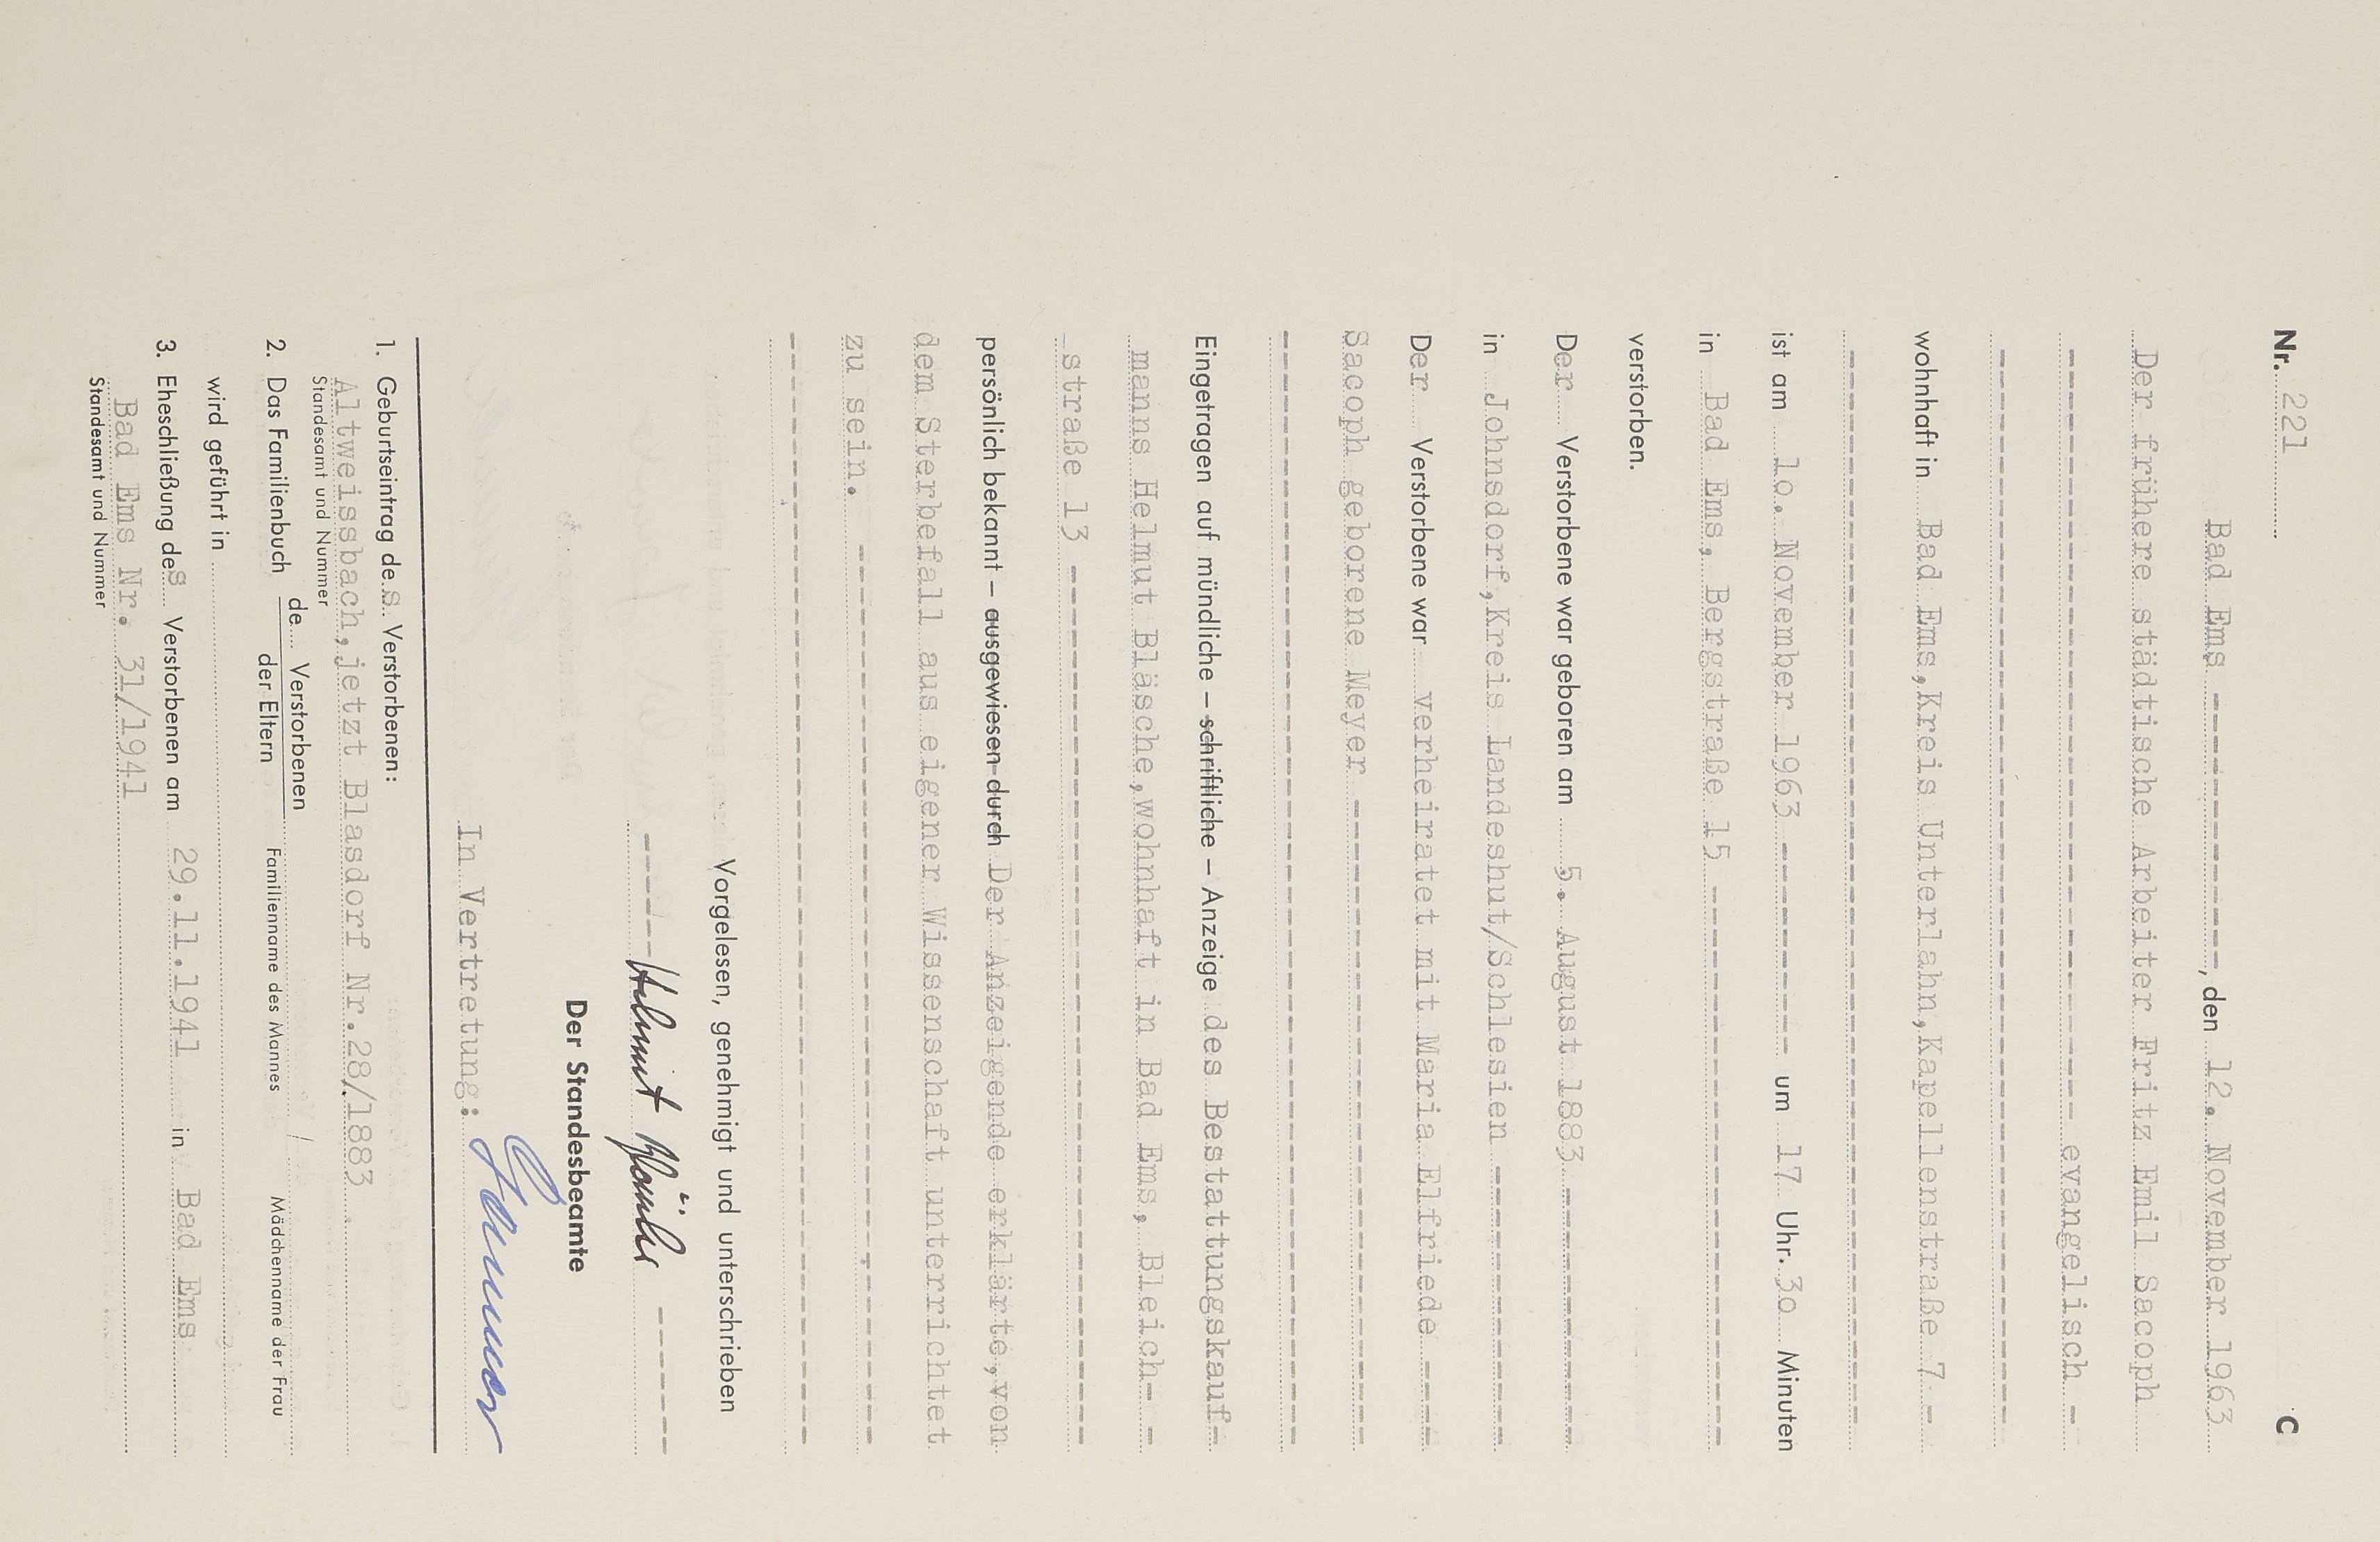 Nr. 221 C
Bad Ems ----------, den 12. November 1963
Der frühere städtische Arbeiter Fritz Emil Sacoph
---------------------- evangelisch -
wohnhaft in Bad Ems,Kreis Unterlahn,Kapellenstraße 7 -
ist am 10. November 1963 --------- um 17 Uhr 30 Minuten
in Bad Ems, Bergstraße 15 ----------------
verstorben.
Der Verstorbene war geboren am 5. August 1883 ----------
in Johnsdorf,Kreis Landeshut/Schlesien ----------
Der Verstorbene war verheiratet mit Maria Elfriede ----
Sacoph geborene Meyer --------------------
Eingetragen auf mündliche – schriftliche – Anzeige des Bestattungskauf-
manns Helmut Bläsche,wohnhaft in Bad Ems, Bleich- -
straße 13 --------------------
persönlich bekannt – ausgewiesen durch Der Anzeigende erklärte,von
dem Sterbefall aus eigener Wissenschaft unterrichtet
zu sein. --------------------
Vorgelesen, genehmigt und unterschrieben
------ Helmut Bläsche ------
Der Standesbeamte
In Vertretung:
1. Geburtseintrag des Verstorbenen:
Altweissbach,jetzt Blasdorf Nr.28/1883
Standesamt und Nummer
2. Das Familienbuch de Verstorbenen
der Eltern
/
Familienname des Mannes Mädchenname der Frau
wird geführt in
3. Eheschließung des Verstorbenen am 29.11.1941 in Bad Ems
Bad Ems Nr. 31/1941
Standesamt und Nummer